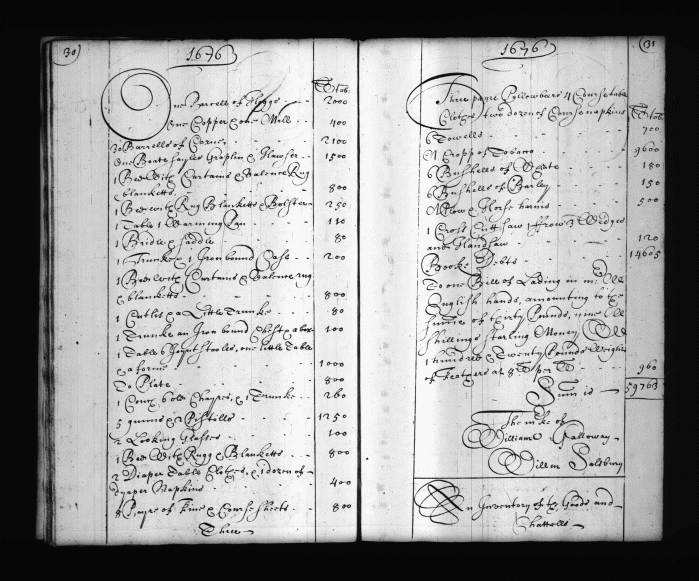 30
1676
lb Tob:
One Barrell of Hoggs - - 2000
One Copper & one Mill - - 400
30 Barrells of Corne - - 2100
One Boate sayles Graplin & - - 1500
1 Bed with Curtains & Valence Rug
& blanketts - - 800
1 Bed with Rug Blanketts & Bolster - 250
1 Table 1 Warming Pan - - 110
1 Bridle & saddle - - 80
1 Trunke & 1 Iron bound Case - - 200
1 Bed with Curtains & Valence rug
& blanketts - - 800
1 & a Little Trunke - - 80
1 Trunke an Iron bound Chest & a box - 100
1 Table 6 Joynt stooles, one little Table
& a forme - - 1000
To Plate - - 800
1 Couch 6 old Chayres, & 1 Trunke - 260
5 gunns & 2 Pistills - - 1250
2 Looking Glasses - - 100
1 Bed with Rugg & Blanketts - - 800
2 Diaper Table Clothes, & 1 dozen of
Dyaper Napkins - - 400
8 Payre of fine & Course sheets - 800
Three
31
1676
Three payre Pillowbears 4 Course table
Clothes two dozen of Course napkins
lb Tob:
6 Towells - - 700
A Cropp of Tobacco - - 9600
6 Bushells of - - 180
6 Bushells of Barley - - 150
A Plow & Horse harnis - - 500
1 Cross Cutt saw 1 ffrow 3 Wedges
and Handsaw - - 120
Booke Debts - - 14605
To one Bill of Lading in mr
English hands, amounting to the
summe of thirty Pounds, nine
shillings starling Money
1 hundred & twenty Pounds Weight
of feathers at 8 lb per lb - 960
Sum is - 59763
The mke of
William Galloway
Willm Saltbury
An Inventory of the Goods and
Chattells